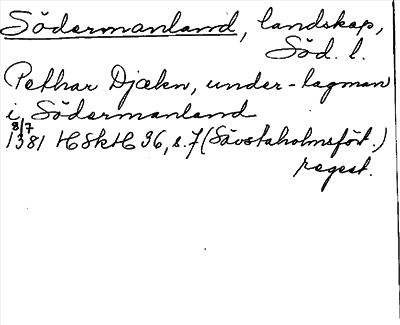 Södermanland, landskap,
Söd. l.
Pethar Djækn, under-lagman
i Södermanland
8/7
1381 HSkH 36, s. 7 (Sävstaholmsfört.)
regest.